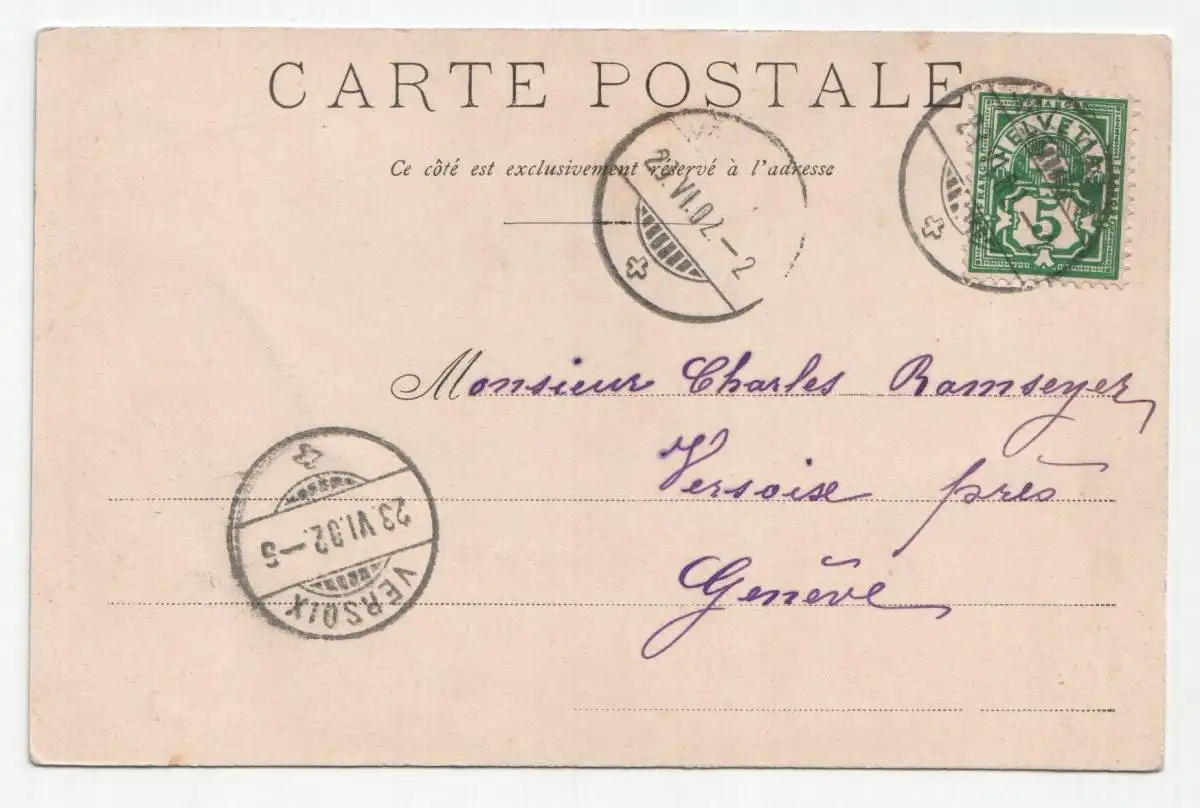 CARTE POSTALE
Ce côté est exclusivement réservé à l'adresse
23.VI.02.–2
FRANCO
HELVETIA
5
Monsieur Charles Ramseyer
Versoix près
Genève
23.VI.02.–5
VERSOIX